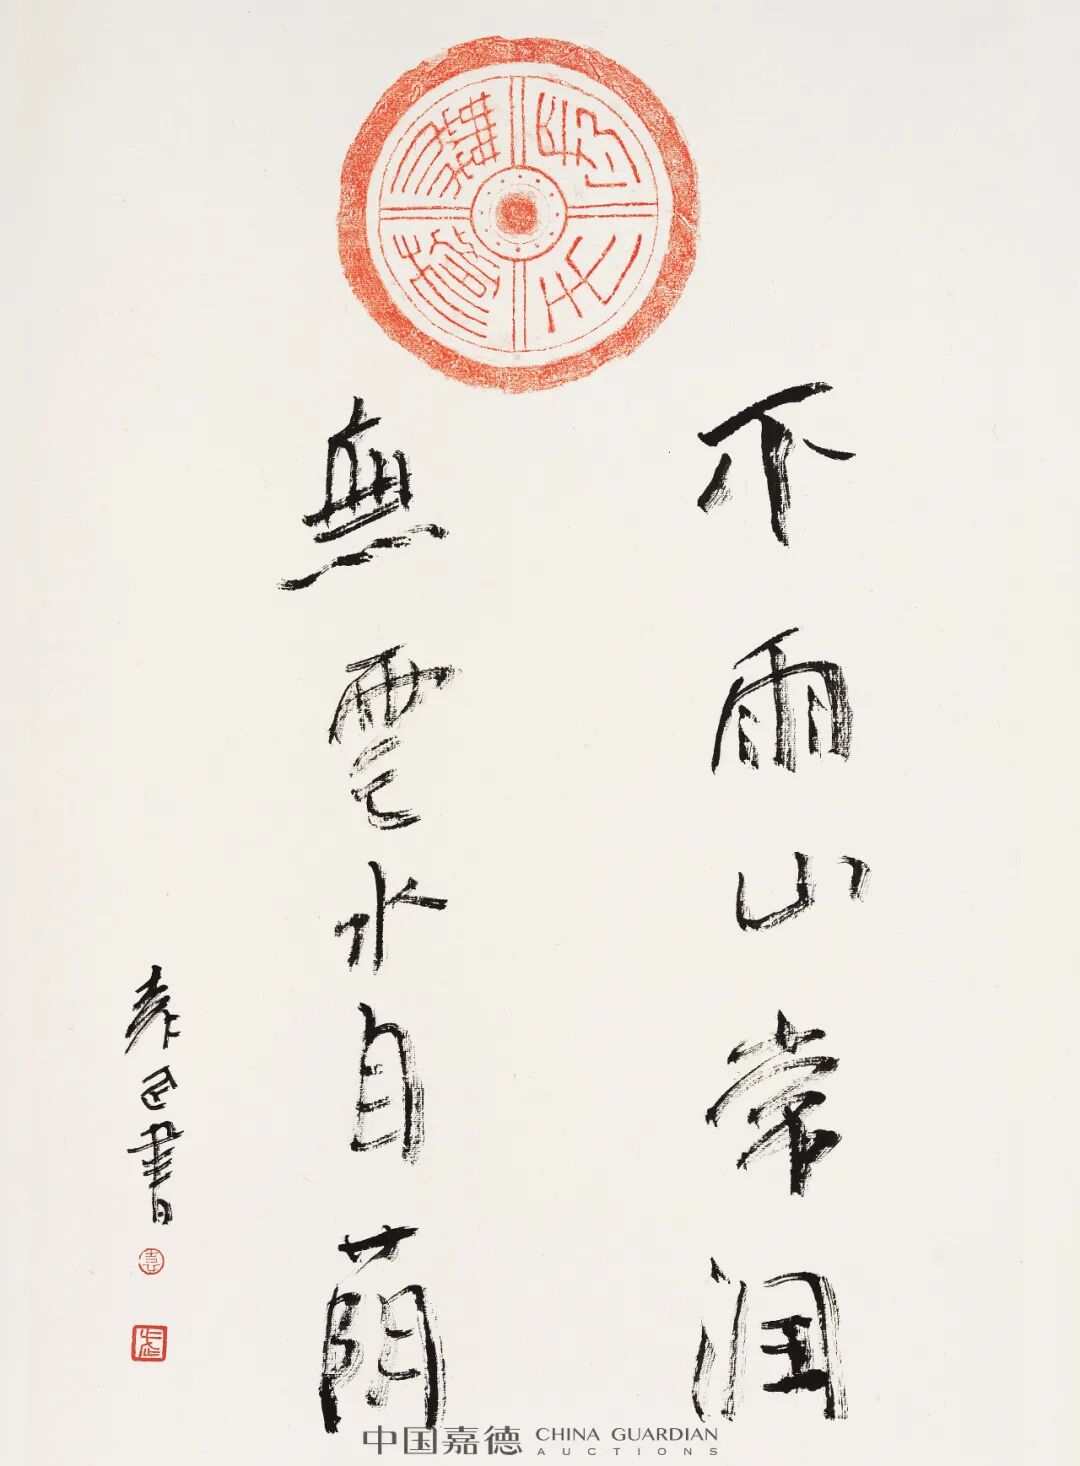 不雨山常润
無雲水自蔭
袁武書
中国嘉德 CHINA GUARDIAN
AUCTIONS